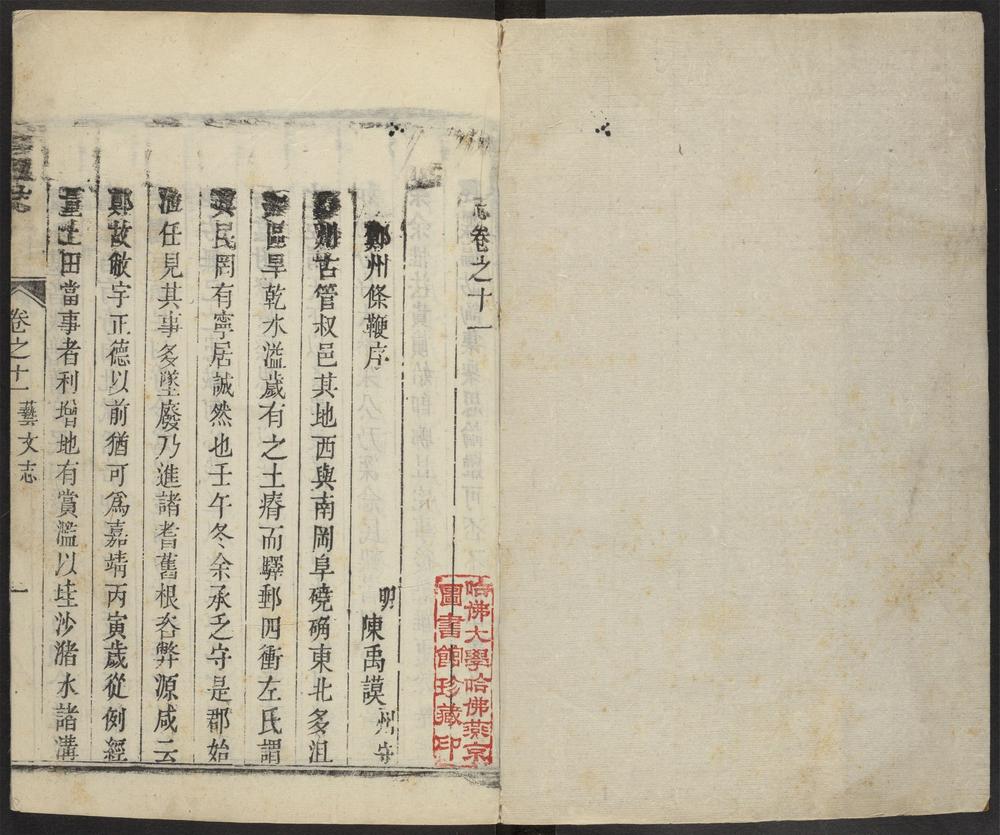 志卷之十一
鄭州條鞭序
明 陳禹謨 州守
古管叔邑其地西與南岡阜磽确東北多沮
區旱乾水溢歲有之土瘠而驛郵四衝左氏謂
其民罔有寧居誠然也壬午冬余承乏守是郡始
任見其事多墜廢乃進諸耆舊根咨弊源咸云
鄭故敝字正德以前猶可為嘉靖丙寅歲從例經
量土田當事者利增地有賞濫以坓沙潴水諸溝
卷之十一 藝文志 一
哈佛大學哈佛燕京
圖書館珍藏印